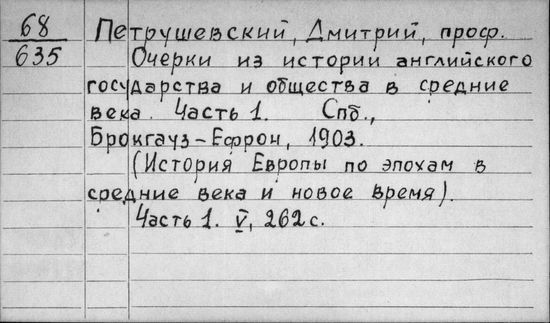 68 Петрушевский, Дмитрий, проф.
635 Очерки из истории английского
государства и общества в средние
века. Часть 1. Спб.,
Брокгауз-Ефрон, 1903.
(История Европы по эпохам в
средние века и новое время).
Часть 1. V, 262 с.